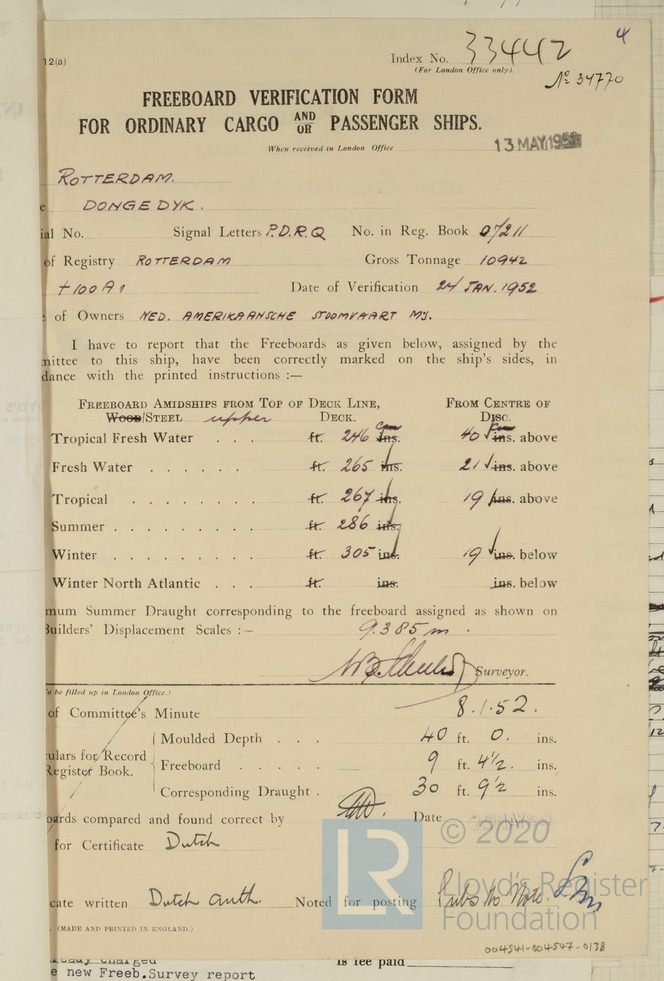 12(a)
Index No. 33442
4
(For London Office only).
No 34770
FREEBOARD VERIFICATION FORM
FOR ORDINARY CARGO AND/OR PASSENGER SHIPS.
When received in London Office
13 MAY 1952
ROTTERDAM.
e DONGEDYK.
ial No. Signal Letters P.D.R.Q No. in Reg. Book 07211
of Registry ROTTERDAM Gross Tonnage 10942
+100A1 Date of Verification 24 JAN. 1952
of Owners NED. AMERIKAANSCHE STOOMVAART MY.
I have to report that the Freeboards as given below, assigned by the
mittee to this ship, have been correctly marked on the ship's sides, in
dance with the printed instructions :—
FREEBOARD AMIDSHIPS FROM TOP OF DECK LINE, FROM CENTRE OF
WOOD/STEEL upper DECK. DISC.
cm cm
Tropical Fresh Water . . . ft. 246 ins. 40 ins. above
Fresh Water . . . . . . ft. 265 ins. 21 ins. above
Tropical . . . . . . . ft. 267 ins. 19 ins. above
Summer . . . . . . . . ft. 286 ins.
Winter . . . . . . . . ft. 305 ins. 19 ins. below
Winter North Atlantic . . . ft. ins. ins. below
mum Summer Draught corresponding to the freeboard assigned as shown on
Builders' Displacement Scales :— 9.385 m.
Surveyor.
To be filled up in London Office.)
of Committee's Minute 8.1.52.
Moulded Depth . . . 40 ft. 0. ins.
ulars for Record
Register Book.
Freeboard . . . . . 9 ft. 4½. ins.
Corresponding Draught . 30 ft. 9½ ins.
oards compared and found correct by Date
for Certificate Dutch
cate written Dutch auth. Noted for posting Pubs No Noto.
. (MADE AND PRINTED IN ENGLAND.)
© 2020
LR
Lloyd's Register
Foundation
004541-004547-0138
ready charged is fee paid
e new Freeb.Survey report